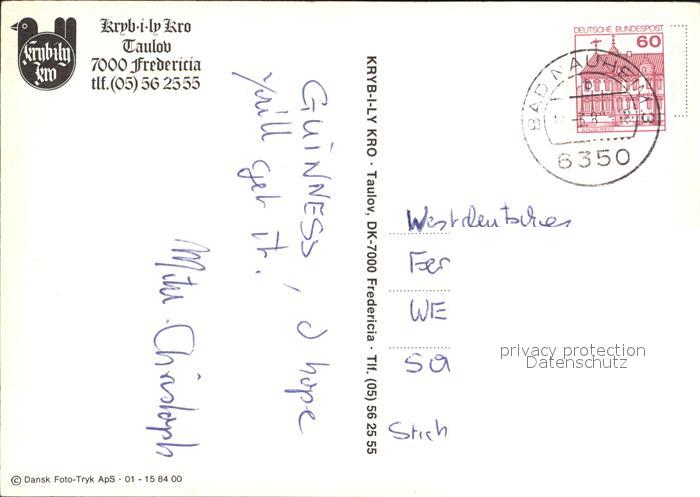 Kryb·i·ly Kro
Taulov
7000 Fredericia
tlf.(05) 56 25 55
Kryb·i·ly
kro
DEUTSCHE BUNDESPOST
60
BAD NAUHEIM
6350
GUINNESS, I hope
you'll get it.
Christoph
KRYB-I-LY KRO · Taulov, DK-7000 Fredericia · Tlf. (05) 56 25 55
Westdeutsches
WE
Stich
privacy protection
Datenschutz
© Dansk Foto-Tryk ApS · 01 - 15 84 00